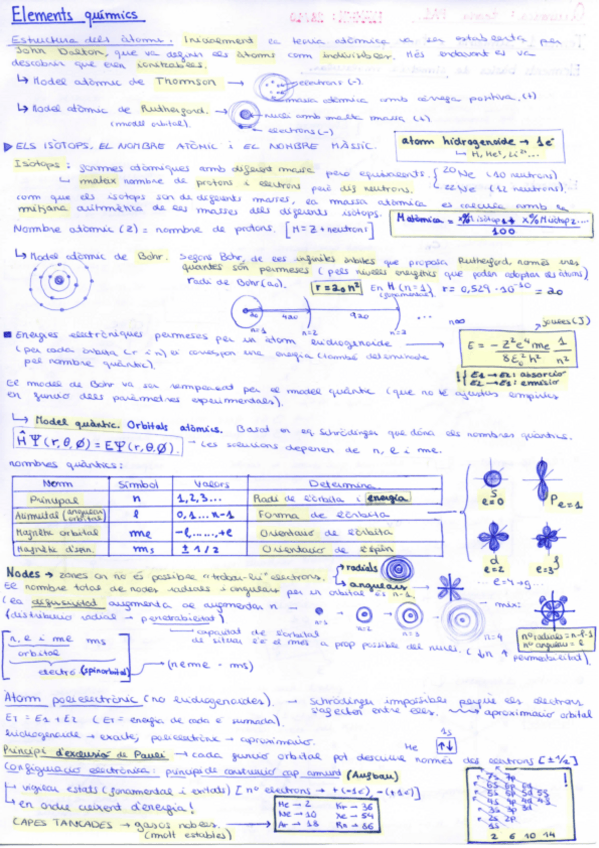 Elements químics
Estructura dels àtoms. Inicialment la teoria atòmica va ser establerta per
John Dalton, que va definir els àtoms com indivisibles. Més endavant es va
descobrir que eren ionitzables.
↳ Model atòmic de Thomson → electrons (-).
massa atòmica amb càrrega positiva. (+)
↳ Model atòmic de Rutherford. → nucli amb molta massa (+)
(model orbital). electrons (-)
▶ ELS ISÒTOPS, EL NOMBRE ATÒMIC i EL NOMBRE MÀSSIC.
atom hidrogenoide → 1e⁻
↳ H, He⁺, Li²⁺...
Isòtops: formes atòmiques amb diferent massa però equivalents. { 20Ne (10 neutrons)
↳ mateix nombre de protons i electrons però dif neutrons. 22Ne (12 neutrons).
com que els isotops són de diferents masses, la massa atòmica es calcula amb la
mitjana aritmètica de les masses dels diferents isotops.
Matòmica = x%·1isòtop+ x%M isòtop2.... / 100
Nombre atòmic (Z) = nombre de protons. [M = Z + neutrons]
↳ Model atòmic de Bohr. Segons Bohr, de les infinites òrbites que proposa Rutherford només unes
quantes són permeses (pels nivells energètics que poden adoptar els àtoms)
radi de Bohr (a₀). r = a₀n² En H (n=1) r = 0,529·10⁻¹⁰ = a₀
(fonamental)
4a₀ 9a₀ ...
n=1 n=2 n=3 n=∞
■ Energies electròniques permeses per un àtom hidrogenoide → joules (J)
(per cada òrbita (r i n) li correspon una energia (també determinada
pel nombre quàntic).
E = - Z²e⁴me / 8ε₀²h² · 1 / n²
E1 → E2: absorció
E2 → E1: emissió
El model de Bohr va ser remplaçat per el model quàntic (que no té ajustos empírics
en funció dels paràmetres experimentals).
↳ Model quàntic. Orbitals atòmics. Basat en eq Schrödinger que dóna els nombres quàntics.
ĤΨ(r,θ,Ø) = EΨ(r,θ,Ø). → Les solucions depenen de n, l i ml.
nombres quàntics:
Nom Símbol Valors Determina
Principal n 1,2,3... Radi de l'òrbita i energia
Azimutal (angular orbital) l 0,1...n-1 Forma de l'òrbita
Magnètic orbital ml -l,...,+l Orientació de l'òrbita
Magnètic d'spin. ms ± 1/2 Orientació de l'spin
s p
l=0 l=1
d f
l=2 l=3
Nodes → zones on no és possible "trobar-hi" electrons. radials
angulars
El nombre total de nodes radials + angulars per un orbital és n-1.
(la difusivitat augmenta en augmentar n →
(distribució radial → penetrabilitat)
n=1 n=2 n=3 n=4
mix:
nº radials = n-l-1
nº angulars = l
↳ capacitat de l'orbital
de situar l'e el més a prop possible del nucli. (↓n ↑ permeabilitat).
n, l i ml ms
orbital
electró (spinorbital) → (n l ml · ms)
Atom polielectrònic (no hidrogenoides). → Schrödinger impossible perquè els electrons
s'afecten entre ells. → aproximació orbital
ET = E1 + E2 (ET = energia de cada e sumada).
hidrogenoide → exacte, polielectrònic → aproximació.
1s
He ↑↓
Principi d'exclusió de Pauli → cada funció orbital pot descriure només dos electrons [±1/2]
Configuració electrònica: principi de construcció cap amunt (Aufbau)
↳ vigilar estats (fonamental i excitats) [nº electrons → +(-1e), -(+1e)]
↳ en ordre creixent d'energia!
CAPES TANCADES → gasos nobles.
(molt estables)
He → 2 Kr → 36
Ne → 10 Xe → 54
Ar → 18 Rn → 86
7s 7p
6s 6p 6d
5s 5p 5d 5f
4s 4p 4d 4f
3s 3p 3d
2s 2p
1s
2 6 10 14
!